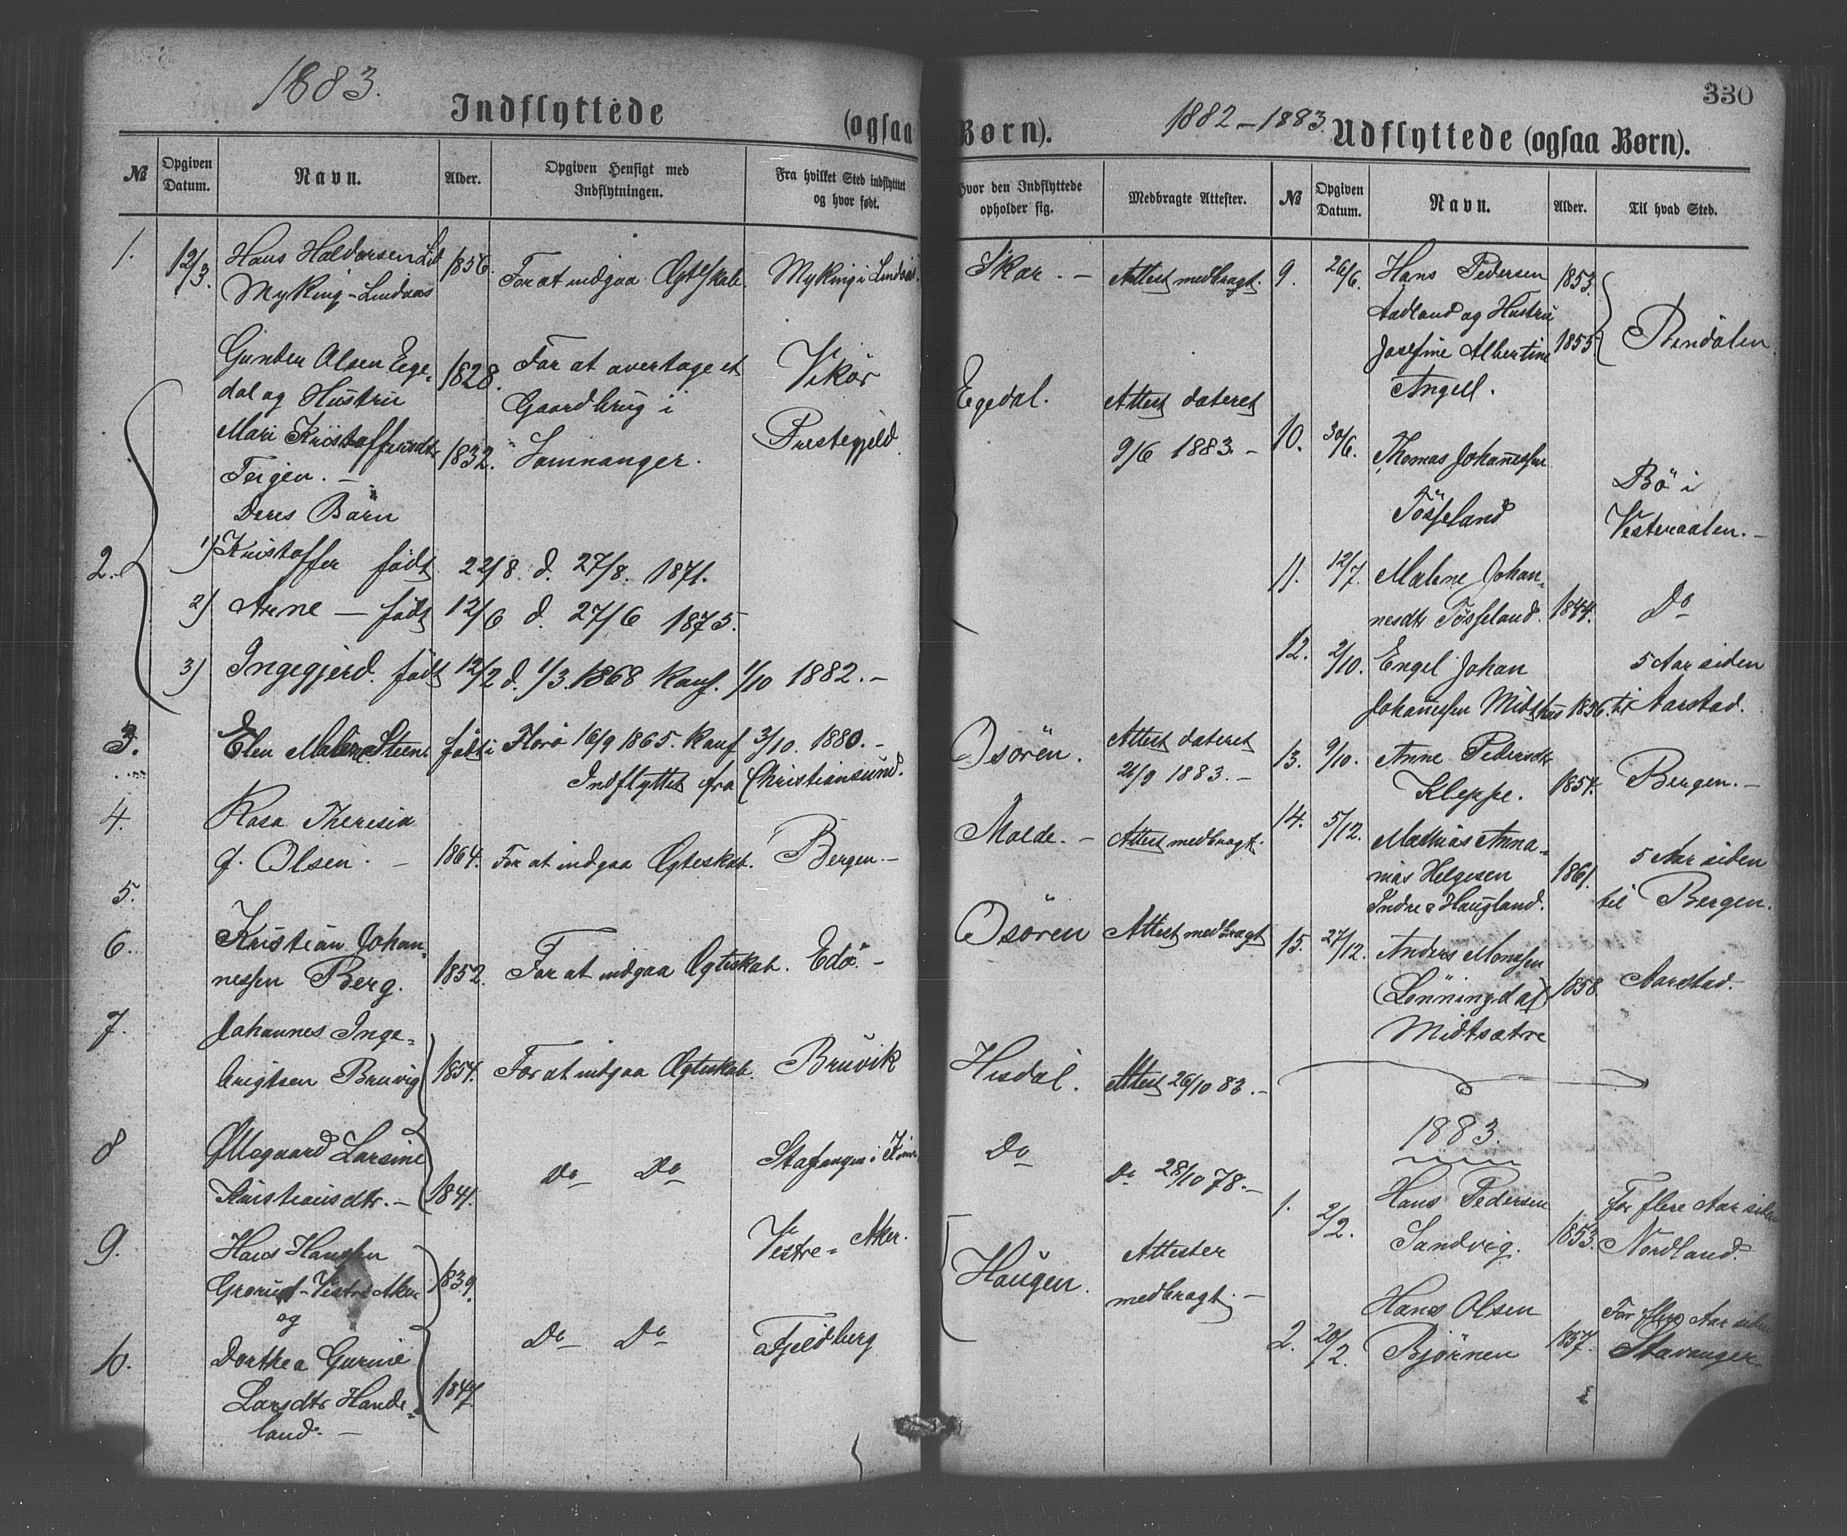 1883.
Indflyttede (ogsaa Børn).
1882-1883.
Udflyttede (ogsaa Børn).
330
№ Opgiven Datum. Navn. Alder. Opgiven Hensigt med Indflytningen. Fra hvilket Sted indflyttet og hvor født. Hvor den Indflyttede opholder sig. Medbragte Attester.
1. 12/3. Hans Haldorsen Lid 1856. For at indgaa Ægteskab. Myking i Lindaas. Skar. – Attest medbragt.
Myking-Lindaas
Gunder Olsen Ege- 1828. For at overtage et Vikör Egedal. Attest dateret
dal og Hustru Gaardbrug i Prestegjeld. 9/6 1883. –
Mari Kristoffersdtr 1832. Samnanger.
Teigen. –
Deres Börn
2. 1) Kristoffer födt 22/8 d. 27/8. 1871.
2) Arne – födt 12/6 d. 27/6 1875.
3) Ingegjerd. födt 12/2 d. 1/3. 1868 Konf. 1/10 1882. –
3. Elen Malene Steen födt i Florö 16/9 1865. Konf 3/10. 1880. – Osören. Attest dateret
Indflyttet fra Christiansund. 21/9 1883. –
4. Rosa Theresia
f. Olsen. – 1864. For at indgaa Ægteskab. Bergen. – Molde. – Attest medbragt.
5.
6. Kristian Johan- 1852. For at indgaa Ægteskab. Edö. – Osören Attest medbragt
nessen Berg.
7. Johannes Inge-
brigtsen Bruvig 1854. For at indgaa Ægteskab. Bruvik Hisdal. Attest 26/10 83. –
8 Larsine
Kristiansdtr. – 1841. Do Do Do Do 28/10 78. –
9. Hans Hansen 1839. Vestre Aker. Haugen. Attester
Grorud-Vestre Aker medbragt. –
og
10. Dorthea Gurine Do Do Fjeldberg
Larsdtr Hande- 1847.
land. –
№ Opgiven Datum. Navn. Alder. Til hvad Sted.
9. 26/6. Hans Pedersen 1853.
Aadland og Hustru
Josefine Albertine 1855
Angell.
10. 30/6. Thomas Johannessen Bö i
Tösseland Vesteraalen. –
11. 12/7. Malene Johan-
nesdtr Tösseland. 1844. Do
12. 2/10. Engel Johan 5 Aar siden
Johannessen Midthus 1856. til Aarstad.
13. 9/10. Anne Pedersdtr
Kleppe. 1854. Bergen. –
14. 5/12. Mathias Anna-
nias Helgesen 1861. 5 Aar siden
Indre Haugland. til Bergen.
15. 27/12. Anders Monssen
(Lönningdal) 1858. Aarstad. –
Midtsætre
1883.
1. 2/2. Hans Pedersen For flere Aar siden
Sandvig. 1853. Nordland.
2. 20/2. Hans Olsen For flere Aar siden
Bjørnen 1857. Stavanger